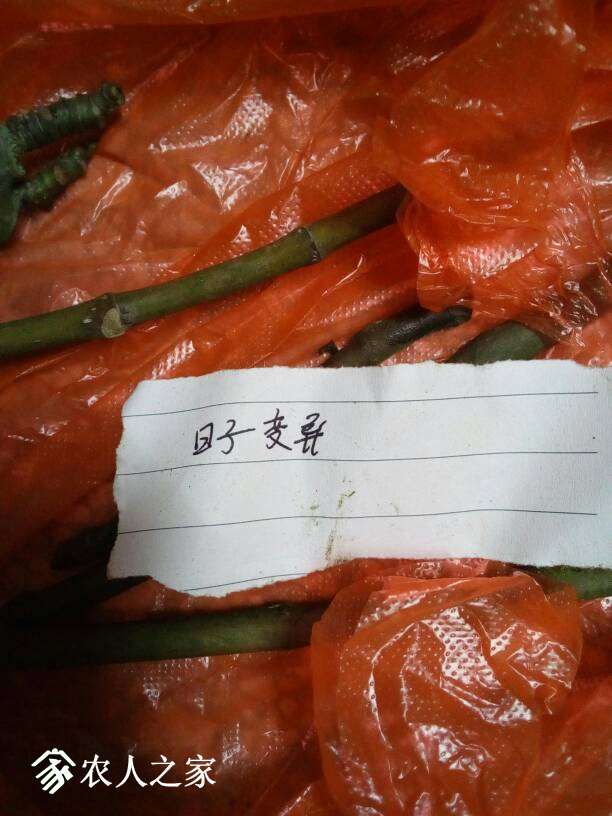 日子变异
农人之家